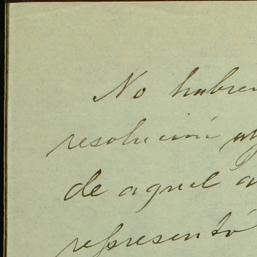 No habre
resolución
de aquel a
representó